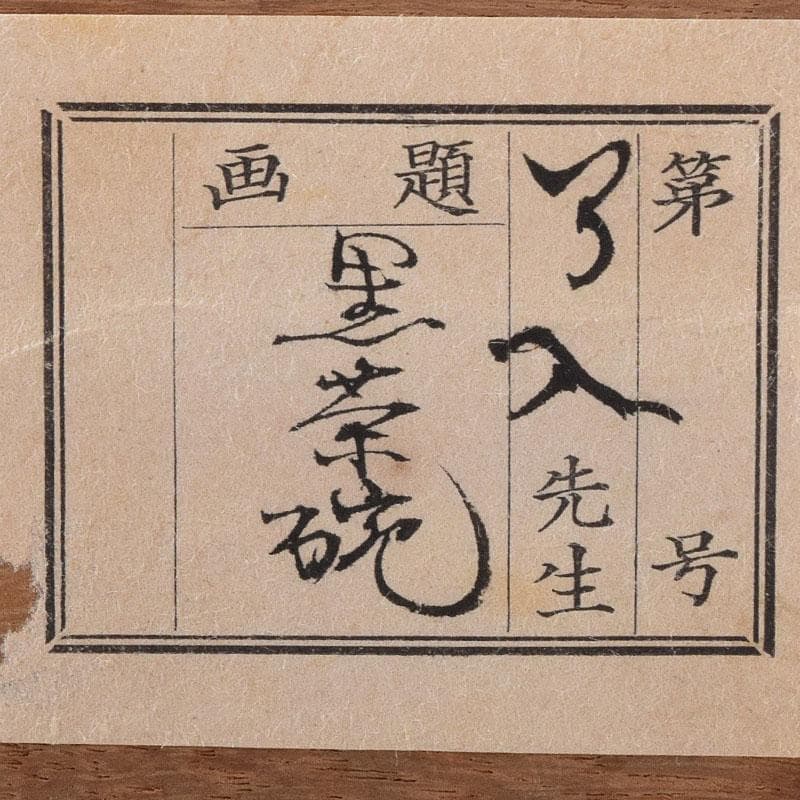 第　号
了入先生
画題
黒茶碗